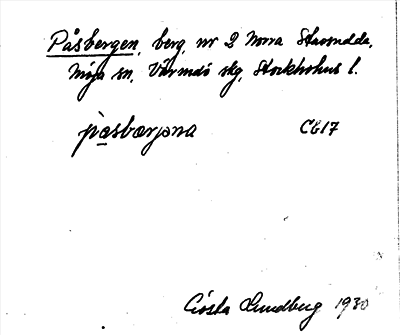 Påsbergen, berg, nr 2 Norra Stavsudda,
Möja sn, Värmdö skg, Stockholms l.
pasbærjəna C617
Gösta Lundberg 1930